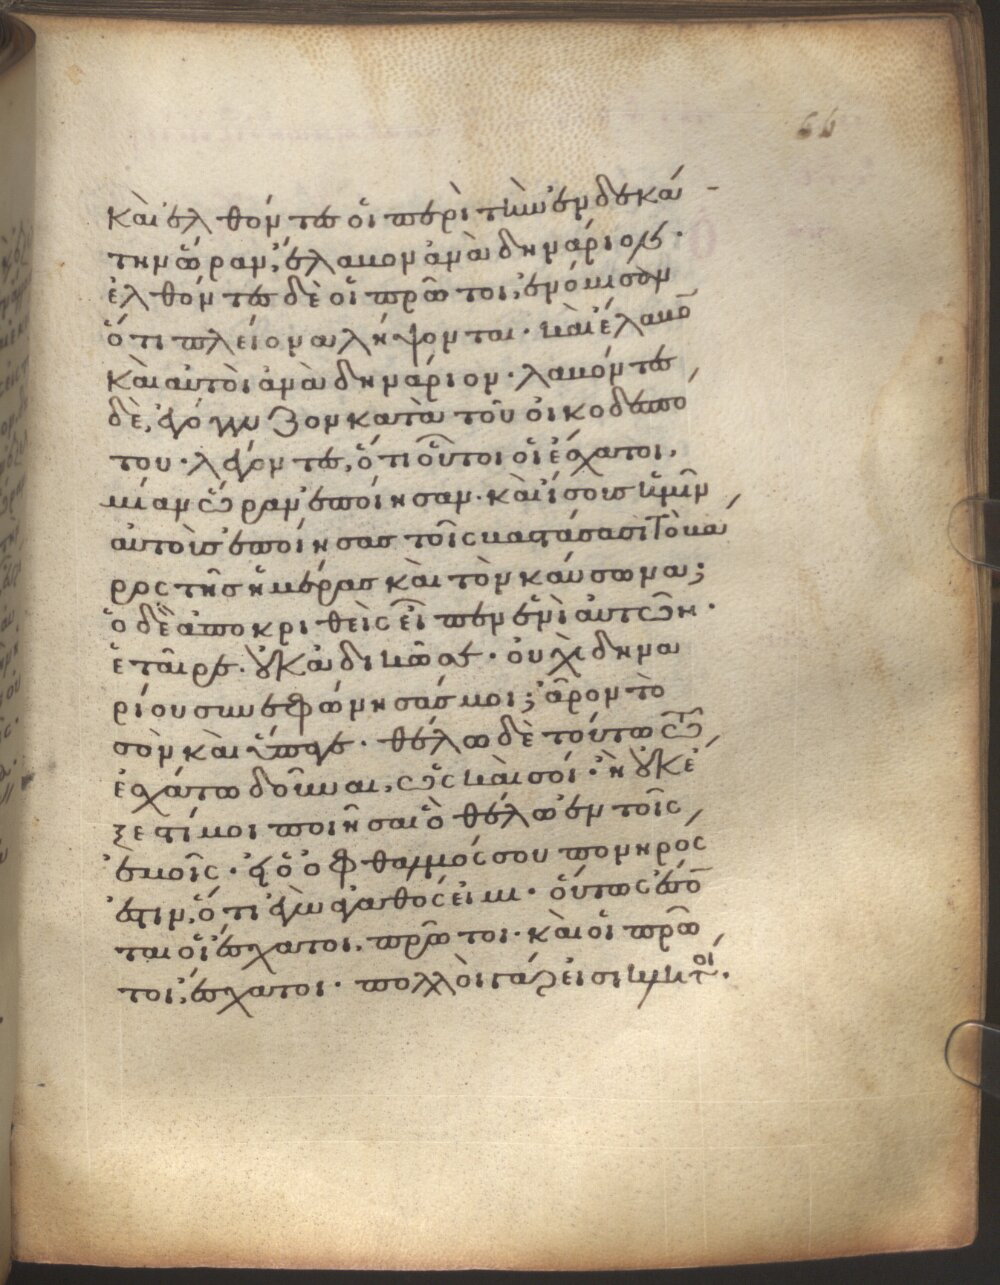 66
καὶ ἐλθόντες οἱ περὶ τὴν ἑνδεκά
την ὥραν, ἔλαβον ἀνὰ δηνάριον·
ἐλθόντες δὲ οἱ πρῶτοι, ἐνόμισαν
ὅτι πλείονα λήψονται· καὶ ἔλαβο̅
καὶ αὐτοὶ ἀνὰ δηνάριον· λαβόντες
δὲ, ἐγόγγυζον κατὰ τοῦ οἰκοδεσπό
του· λέγοντες, ὅτι οὗτοι οἱ ἔσχατοι,
μίαν ὥραν ἐποίησαν· καὶ ἴσους ἡμῖν
αὐτοὺς ἐποίησας τοῖς βαστάσασι τὸ βά
ρος τῆς ἡμέρας καὶ τὸν καύσωνα;
ὁ δὲ ἀποκριθεὶς εἶπεν ἑνὶ αὐτῶν·
ἑταῖρε· οὐκ ἀδικῶ σε· οὐχὶ δηνα
ρίου συνεφώνησάς μοι; ἆρον τὸ
σὸν καὶ ὕπαγε· θέλω δὲ τούτω τῶ
ἐσχάτω δοῦναι, ὡς καὶ σοί· ἢ οὐκ ἔ
ξεστί μοι ποιῆσαι ὃ θέλω ἐν τοῖς
ἐμοῖς· εἰ ὁ ὀφθαλμός σου πονηρός
ἐστιν, ὅτι ἐγὼ ἀγαθός εἰμι· οὕτως ἔσο̅
ται οἱ ἔσχατοι, πρῶτοι· καὶ οἱ πρῶ
τοι, ἔσχατοι· πολλοὶ γάρ εἰσι κλητοί·